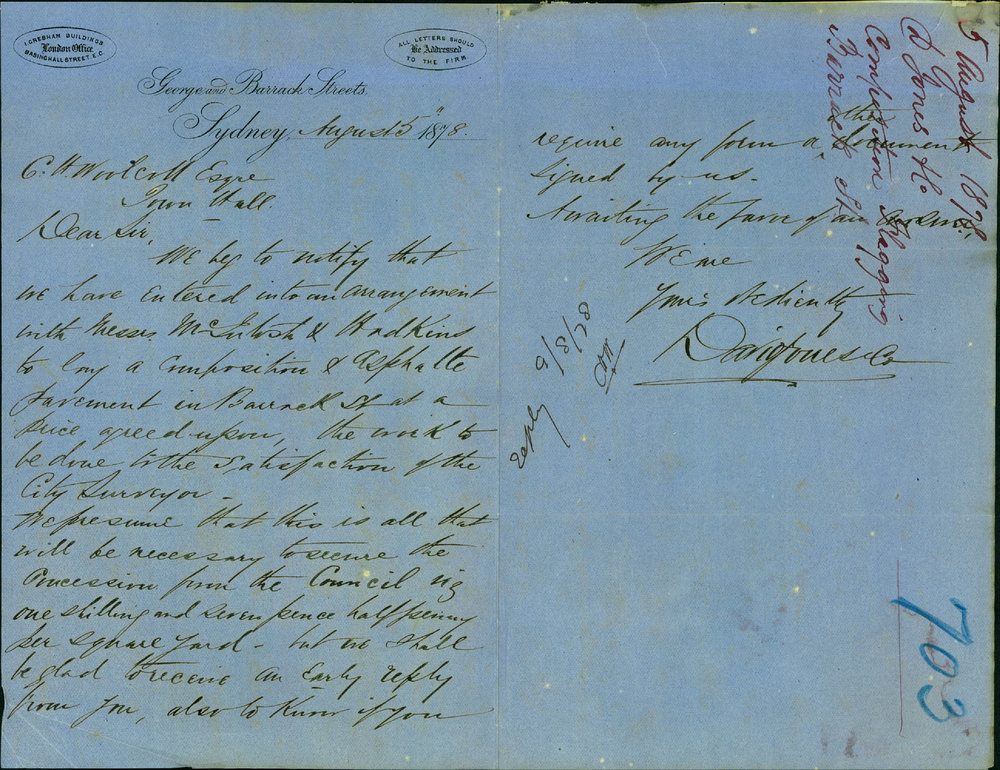 1. GRESHAM BUILDINGS
London Office
BASINGHALL STREET. E.C.
ALL LETTERS SHOULD
Be Addressed
TO THE FIRM
George and Barrack Streets,
Sydney, August 5" 1878.
C. H. Woolcott Esqre
Town Hall.
Dear Sir,
We beg to notify that
we have entered into an arrangement
with Messrs McIntosh & Hodkins
to lay a Composition & Asphalte
pavement in Barrack St at a
price agreed upon, the work to
be done to the satisfaction of the
City Surveyor -
We presume that this is all that
will be necessary to secure the
Concession from the Council viz
one shilling and seven pence halfpenny
per square yard - but we shall
be glad to receive an Early reply
from you, also to know if you
require any form
other
document
signed by us.
Awaiting the favor of an
We are
Yours Obediently
David Jones & Co
reply 5/8/78
5 August 1878
D Jones & Co
Flagging
Barrack St
703